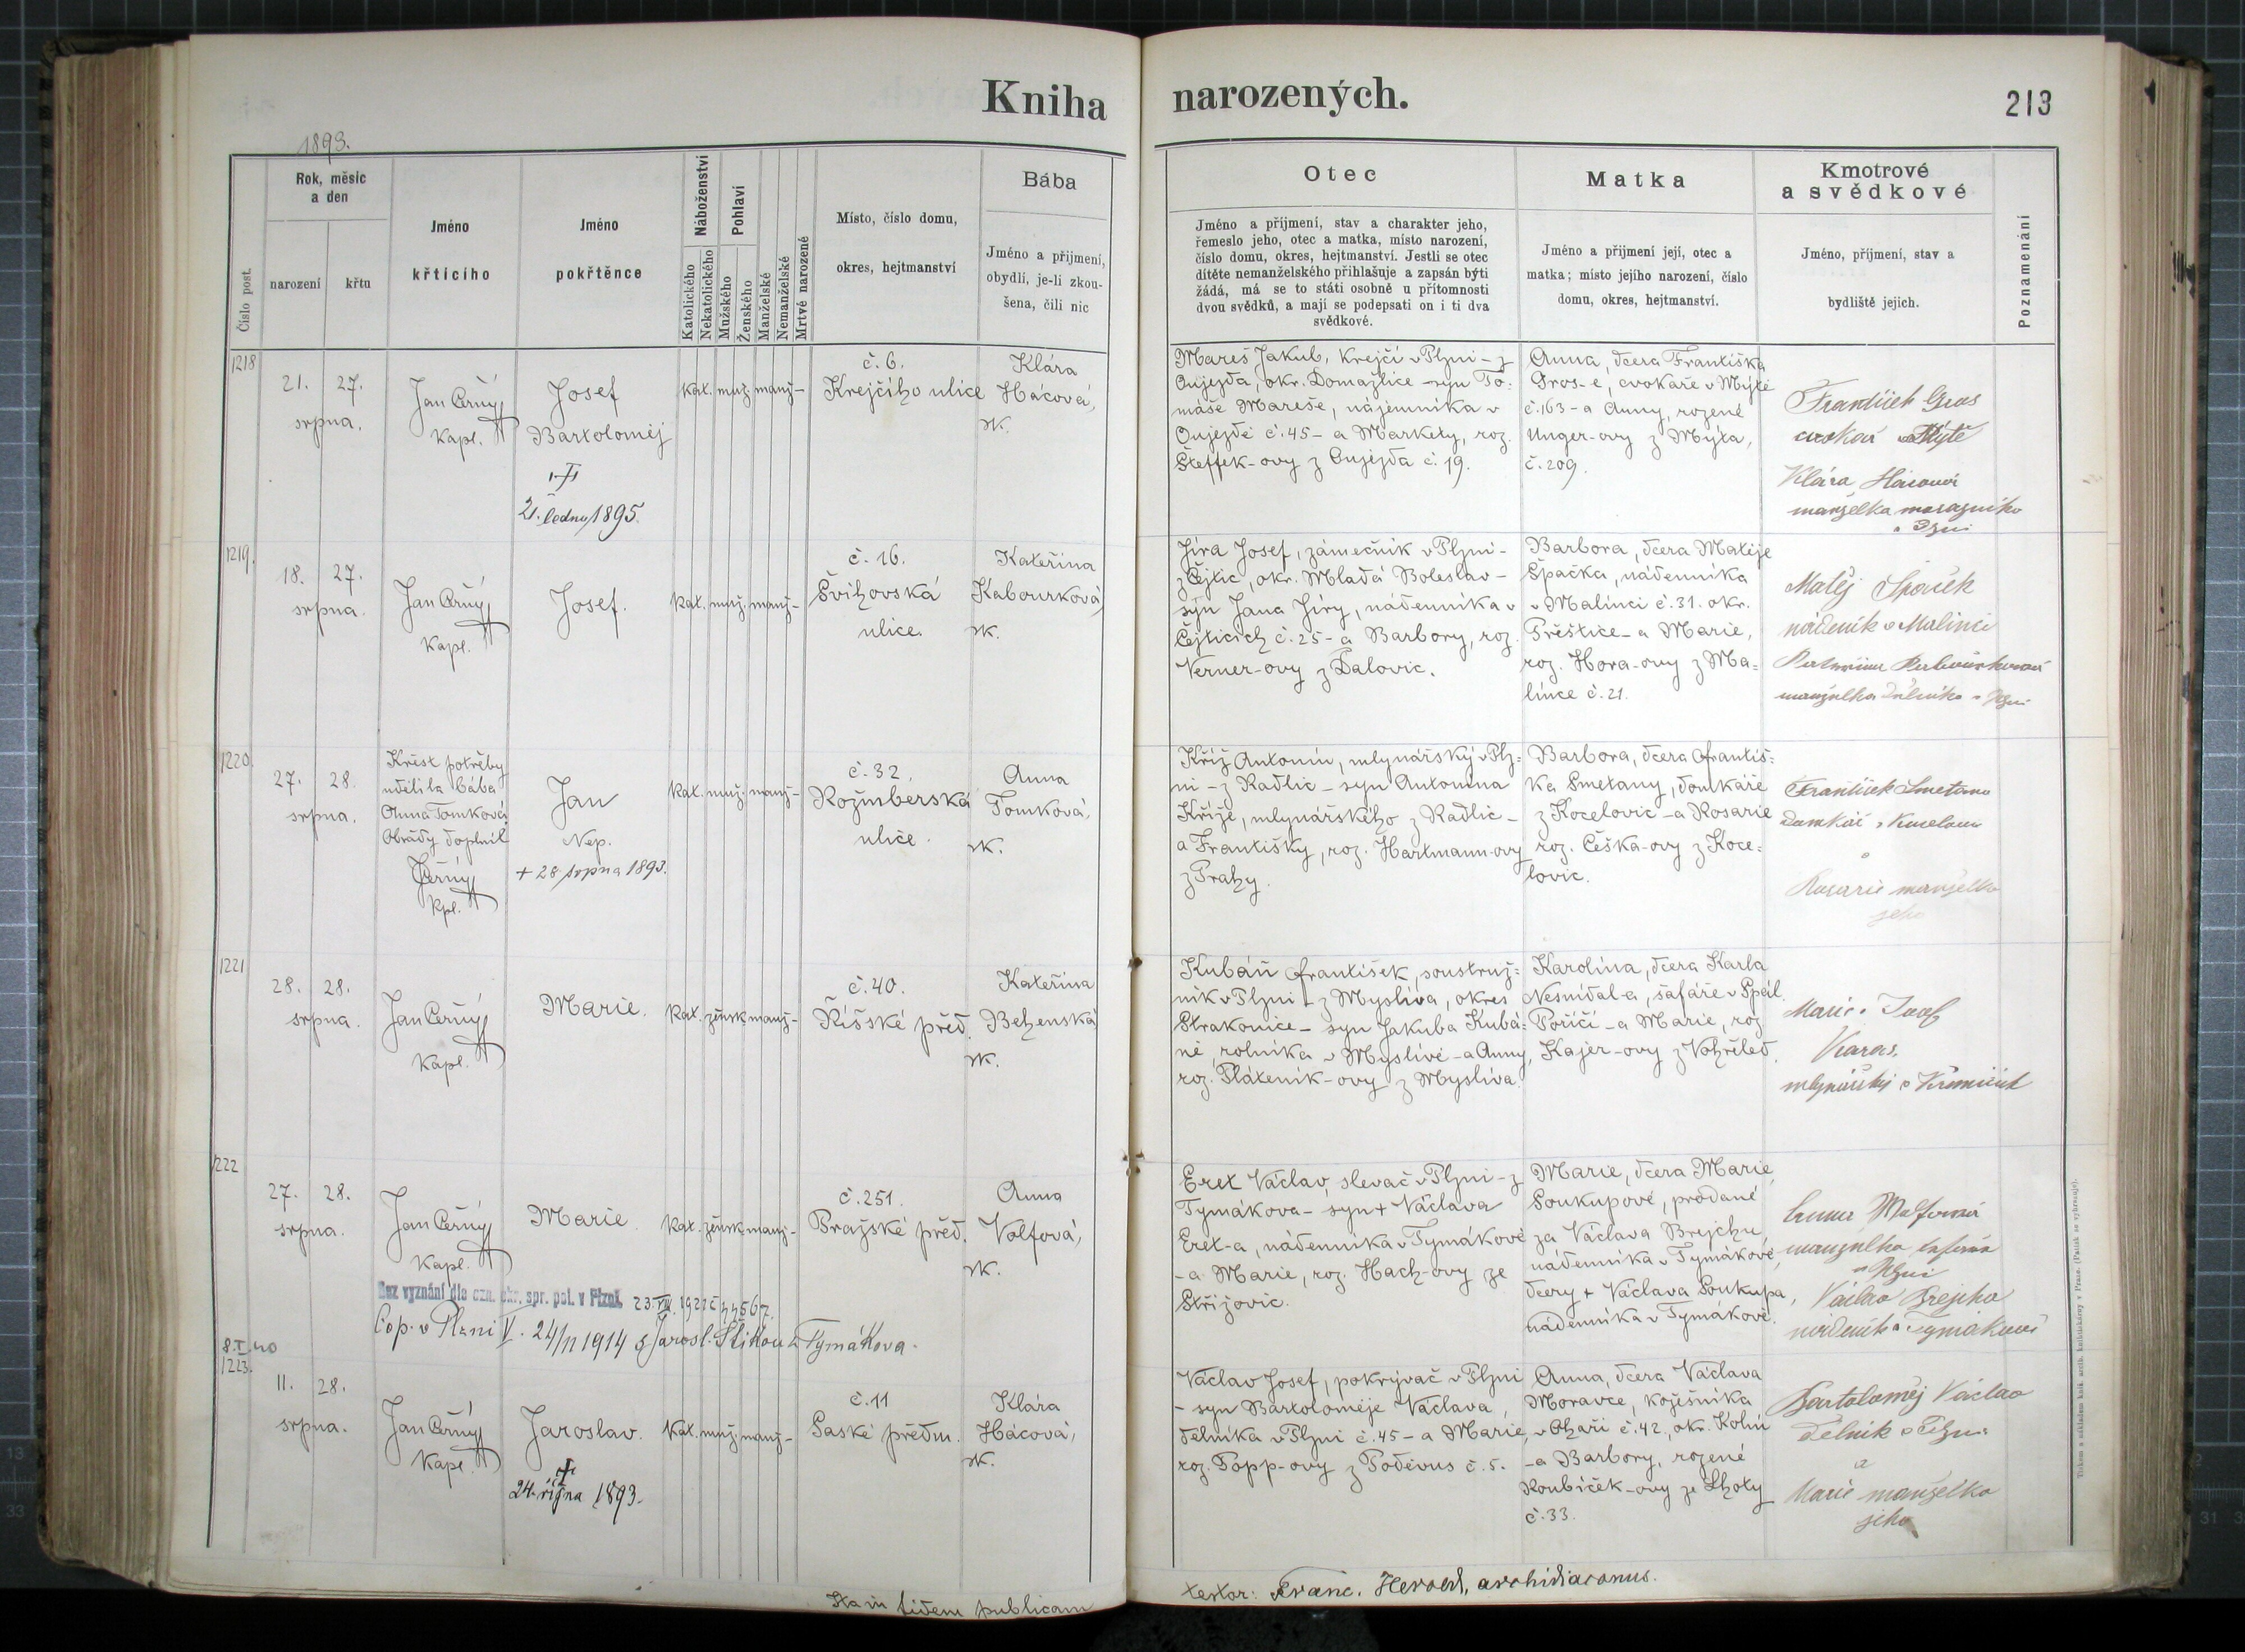 Kniha
narozených.
213
1893.
Číslo post.
Rok, měsíc
a den
narození
křtu
Jméno
křtícího
Jméno
pokřtěnce
Náboženství
Katolického
Nekatolického
Pohlaví
Mužského
Ženského
Manželské
Nemanželské
Mrtvě narozené
Místo, číslo domu,
okres, hejtmanství
Bába
Jméno a přijmení,
obydlí, je-li zkou-
šena, čili nic
Otec
Jméno a příjmení, stav a charakter jeho,
řemeslo jeho, otec a matka, místo narození,
číslo domu, okres, hejtmanství. Jestli se otec
dítěte nemanželského přihlašuje a zapsán býti
žádá, má se to státi osobně u přítomnosti
dvou svědků, a mají se podepsati on i ti dva
svědkové.
Matka
Jméno a příjmení její, otec a
matka; místo jejího narození, číslo
domu, okres, hejtmanství.
Kmotrové
a svědkové
Jméno, příjmení, stav a
bydliště jejich.
Poznamenání
1218
21. 27.
srpna.
Jan Černý
kapl.
Josef
Bartoloměj
21. ledna 1895.
kat. muž. manž-
č. 6.
Krejčího ulice
Klára
Hácová,
zk.
Mareš Jakub, krejčí v Plzni - z
Oujezda, okr. Domažlice - syn To-
máše Mareše, nájemníka v
Oujezdě č. 45 - a Markéty, roz.
Šteffek-ovy z Oujezda č. 19.
Anna, dcera Františka
Gros-e, cvokaře v Mýtě
č. 163 - a Anny, rozené
Unger-ovy z Mýta,
č. 209.
František Gros
cvokař v Mýtě
Klára Hácová
manželka
v Plzni
1219.
18. 27.
srpna.
Jan Černý
kapl.
Josef.
kat. muž. manž-
č. 16.
Švihovská
ulice.
Kateřina
Kabourková
zk.
Jíra Josef, zámečník v Plzni -
z Čejtic, okr. Mladá Boleslav -
syn Jana Jíry, nádenníka v
Čejticích č. 25 - a Barbory, roz.
Verner-ovy z Dalovic.
Barbora, dcera Matěje
Špačka, nádenníka
v Malinci č. 31. okr.
Přeštice - a Marie,
roz. Hora-ovy z Ma-
lince č. 21.
Matěj Špaček
nádeník v Malinci
manželka dělníka v Plzni
1220.
27. 28.
srpna.
Křest potřeby
udělila bába
Anna Tomková
Obřady doplnil
Černý
kpl.
Jan
Nep.
+ 28 srpna 1893.
kat. muž. manž-
č. 32.
Rožmberská
ulice.
Anna
Tomková,
zk.
Kříž Antonín, mlynářský v Plz-
ni - z Radlic - syn Antonína
Kříže, mlynářského z Radlic -
a Františky, roz. Hartmann-ovy
z Prahy.
Barbora, dcera Františ-
ka Smetany, domkáře
z Kocelovic - a Rosarie
roz. Češka-ovy z Koce-
lovic.
František Smetana
domkář
a
Rosarie manželka
jeho
1221
28. 28.
srpna.
Jan Černý
kapl.
Marie.
kat. žensk. manž-
č. 40.
Říšské před.
Kateřina
Behenská
zk.
Kubáň František, soustruž-
ník v Plzni - z Myslíva, okres
Strakonice - syn Jakuba Kubá-
ně, rolníka v Myslívě - a Anny,
roz. Pláteník-ovy z Myslíva.
Karolina, dcera Karla
Nesnídal-a, šafáře v Spál.
Poříčí - a Marie, roz.
Kajer-ovy z Vohřeled.
Marie Josef
Karas.
mlynářský v Křimicích
1222
27. 28.
srpna.
Jan Černý
kapl.
Marie.
kat. žensk. manž-
č. 251.
Pražské před.
Anna
Volfová,
zk.
Eret Václav, slevač v Plzni - z
Tymákova - syn + Václava
Eret-a, nádenníka v Tymákově
- a Marie, roz. Hach-ovy ze
Střížovic.
Marie, dcera Marie
Soukupové, prodané
za Václava Brejchu
nádenníka v Tymákově,
dcery + Václava Soukupa,
nádenníka v Tymákově.
manželka
v Plzni
Václav Brejcha
nádeník v Tymákově
Bez vyznání dle ozn. okr. spr. pol. v Plzni
Cop. v Plzni V. 24/11 1914 s Jarosl. z Tymákova.
8.I.40
1223.
11. 28.
srpna.
Jan Černý
kapl.
Jaroslav.
+
24. října 1893.
kat. muž. manž-
č. 11
Saské předm.
Klára
Hácová,
zk.
Václav Josef, pokrývač v Plzni
- syn Bartoloměje Václava,
dělníka v Plzni č. 45 - a Marie,
roz. Popp-ovy z Poděvus č. 5.
Anna, dcera Václava
Moravce, kožešníka
v Ohaři č. 42, okr. Kolín
- a Barbory, rozené
Koubíček-ovy ze Lhoty
č. 33.
Bartoloměj Václav
dělník v Plzni
a
Marie manželka
jeho
Ita in fidem publicam
testor: Franc. Herold, archidiaconus.